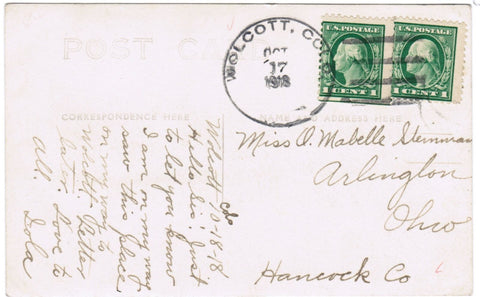 POST CARD
WOLCOTT, COLO.
OCT
17
1918
U.S. POSTAGE
1 CENT 1
U.S. POSTAGE
1 CENT 1
CORRESPONDENCE HERE
NAME AND ADDRESS HERE
Wolcott Colo 10-18-18
Hello Sis! Just
to let you know
I am on my way,
saw this place
on my way to
Wolcott. Letter
later. Love to
all. Lola
Miss O. Mabelle Steinman
Arlington
Ohio
Hancock Co